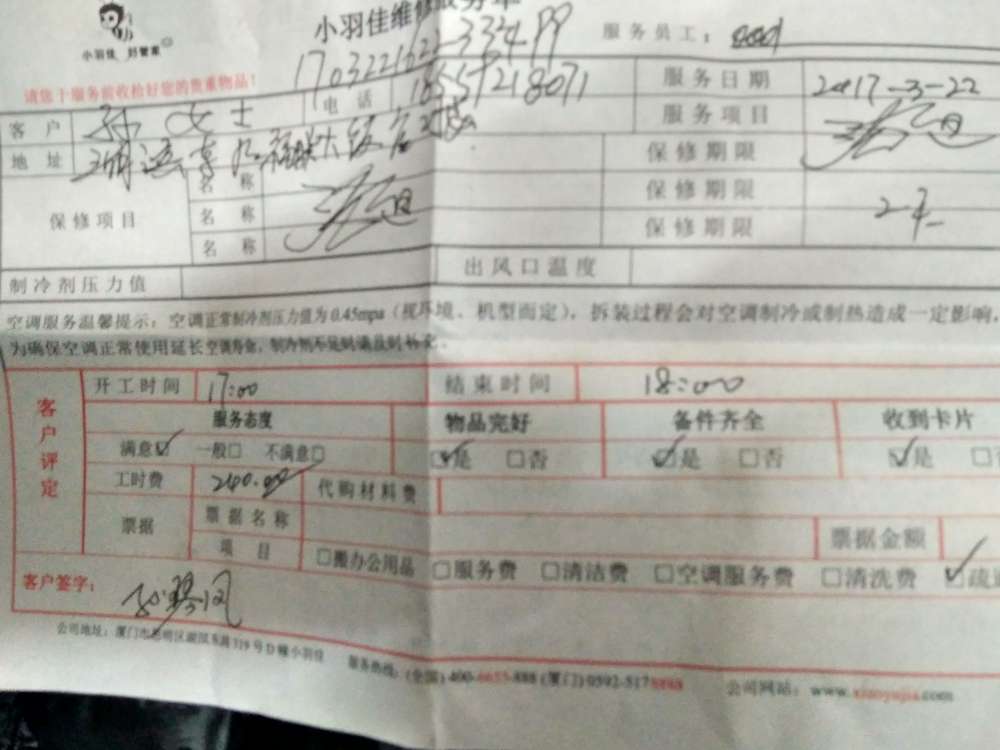 小羽佳维修服务单
服务员工：
小羽佳 刘管家
请您于服务前收检好您的贵重物品！
客户 女士 电话 服务日期 2017-3-22
服务项目
地址
保修项目 名称 保修期限
名称 保修期限
名称 保修期限
制冷剂压力值 出风口温度
空调服务温馨提示：空调正常制冷剂压力值为0.45mpa（视环境、机型而定），拆装过程会对空调制冷或制热造成一定影响，
为确保空调正常使用延长空调寿命，制冷剂不足时请及时补充。
客户评定
开工时间 17:00 结束时间 18:00
服务态度 物品完好 备件齐全 收到卡片
满意☑ 一般□ 不满意□ ☑是 □否 ☑是 □否 ☑是
工时费 240.00 代购材料费
票据 票据名称 票据金额
项目 □搬办公用品 □服务费 □清洁费 □空调服务费 □清洗费 ☑疏通
客户签字：
公司地址：厦门市思明区湖滨东路319号D幢小羽佳 服务热线：(全国) 400-6655-888 (厦门) 0592-5178888 公司网站：www.xiaoyujia.com